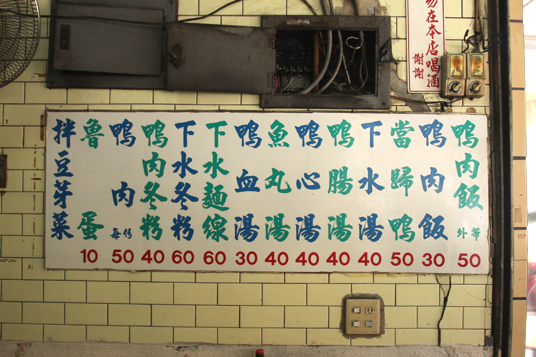 勿在本店喝酒
謝謝
鴨肉飯 外帶 50
鴨肉飯 30
當歸鴨 50
下水湯 40
鴨腸湯 40
鴨心湯 40
魚丸湯 40
鴨血湯 30
下水麵線 60
下水冬粉 60
鴨肉冬粉 40
鴨肉 每份 50
魯蛋 10
拌豆芽菜